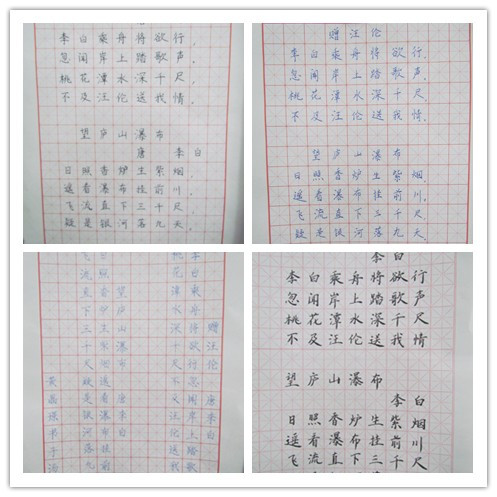 李白乘舟将欲行,
忽闻岸上踏歌声,
桃花潭水深千尺,
不及汪伦送我情.
望庐山瀑布
唐 李白
日照香炉生紫烟,
遥看瀑布挂前川,
飞流直下三千尺,
疑是银河落九天.
赠汪伦
李白乘舟将欲行,
忽闻岸上踏歌声,
桃花潭水深千尺,
不及汪伦送我情.
望庐山瀑布
日照香炉生紫烟,
遥看瀑布挂前川,
飞流直下三千尺,
疑是银河落九天.
赠汪伦 唐李白
李白乘舟将欲行忽闻岸上踏歌
桃花潭水深千尺不及汪伦送我
望庐山瀑布 唐李白
日照香炉生紫烟遥看瀑布挂前
飞流直下三千尺疑是银河落九
李白乘舟将欲行
忽闻岸上踏歌声
桃花潭水深千尺
不及汪伦送我情
望庐山瀑布
李白
日照香炉生紫烟
遥看瀑布挂前川
飞流直下三千尺